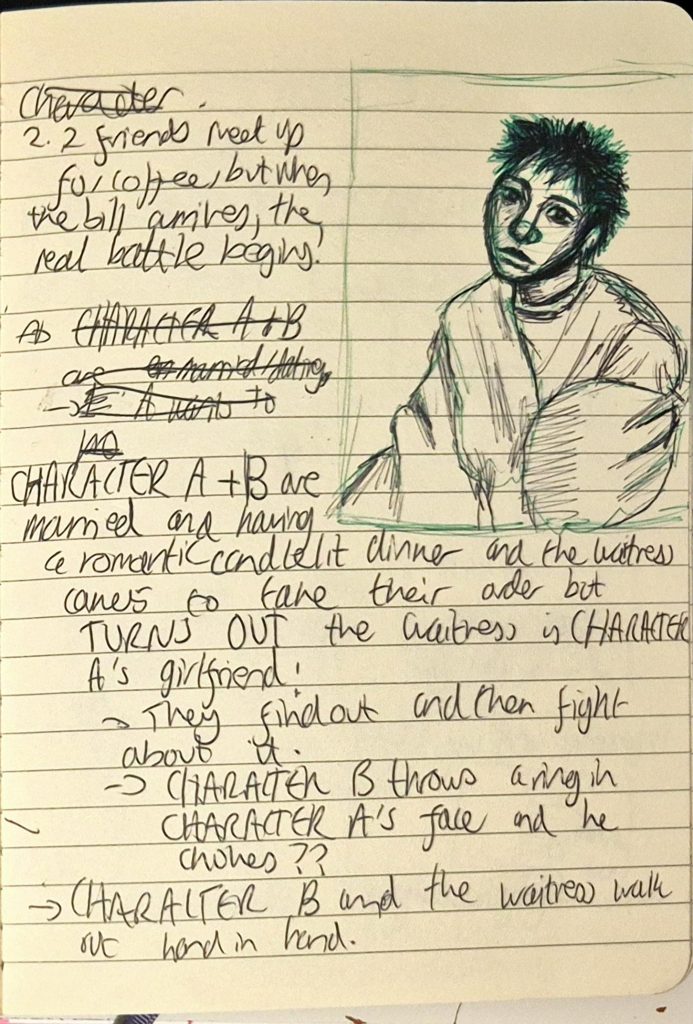 Character.
2. 2 friends meet up
for coffee, but when
the bill arrives, the
real battle begins!
CHARACTER A+B
are married/dating
→ A wants to
CHARACTER A + B are
married and having
a romantic candlelit dinner and the waitress
comes to take their order but
TURNS OUT the waitress is CHARACTER
A's girlfriend!
→ They find out and then fight
about it.
→ CHARACTER B throws a ring in
CHARACTER A's face and he
chokes??
→ CHARACTER B and the waitress walk
out hand in hand.